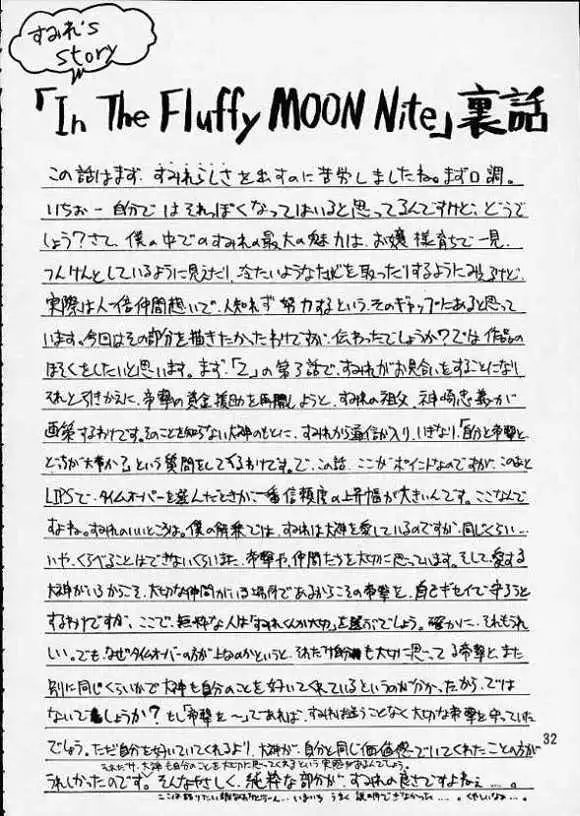 すみれ's
Story
「In The Fluffy MOON Nite」裏話
この話はまず、すみれらしさを出すのに苦労しましたね。まず口調。
いちおー自分ではそれっぽくなってはいると思ってるんですけど、どうで
しょう?さて、僕の中でのすみれの最大の魅力は、お嬢様育ちで一見、
つんけんとしているように見えたり、冷たいような態度を取ったりするようにみえるけど、
実際は人一倍仲間想いで、人知れず努力するという、そのギャップにあると思って
います。今回はその部分を描きたかったわけですが、伝わったでしょうか?では作品の
ほそくをしたいと思います。まず「2」の第3話で、すみれがお見合いをすることになり
それと引きかえに、帝撃の資金援助を再開しようと、すみれの祖父、神崎忠義が
画策するわけです。そのことを知らない大神のもとに、すみれから通信が入り、いきなり「自分と帝撃と
どちらが大事か?」という質問をしてくるわけです。で、この話、ここがポイントなのですが、このあと
LIPSで、タイムオーバーを選んだときが、一番信頼度の上昇幅が大きいんです。ここなんで
すよね。すみれのいいところは。僕の解釈では、すみれは大神を愛しているのですが、同じくらい…
いや、くらべることはできないくらいに、帝撃や、仲間たちを大切に思っています。そして、愛する
大神がいるからこそ、大切な仲間がいる場所であるからこその帝撃を、自己ギセイで守ろうと
するわけですが、ここで、無粋な人は「すみれくんが大切」を選ぶでしょう。確かに、それもうれ
しい。でも、なぜタイムオーバーの方が上なのかというと、それだけ自分も大切に思ってる帝撃と、また
別に同じくらいかで大神も自分のことを好いてくれているというのが分かったから、では
ないでしょうか?もし「帝撃を〜」であれば、すみれは迷うことなく大切な帝撃を守っていた
でしょう。ただ自分を好いていてくれるより、大神が、自分と同じ価値感でいてくれたことの方が
それだけ、大神も自分のことを大切に思ってくれるという実感があるんでしょう。
うれしかったのです。そんなやさしく、純粋な部分が、すみれの良さですよねぇ…。
うまく説明できなかった…。くやしいなぁ…。
32